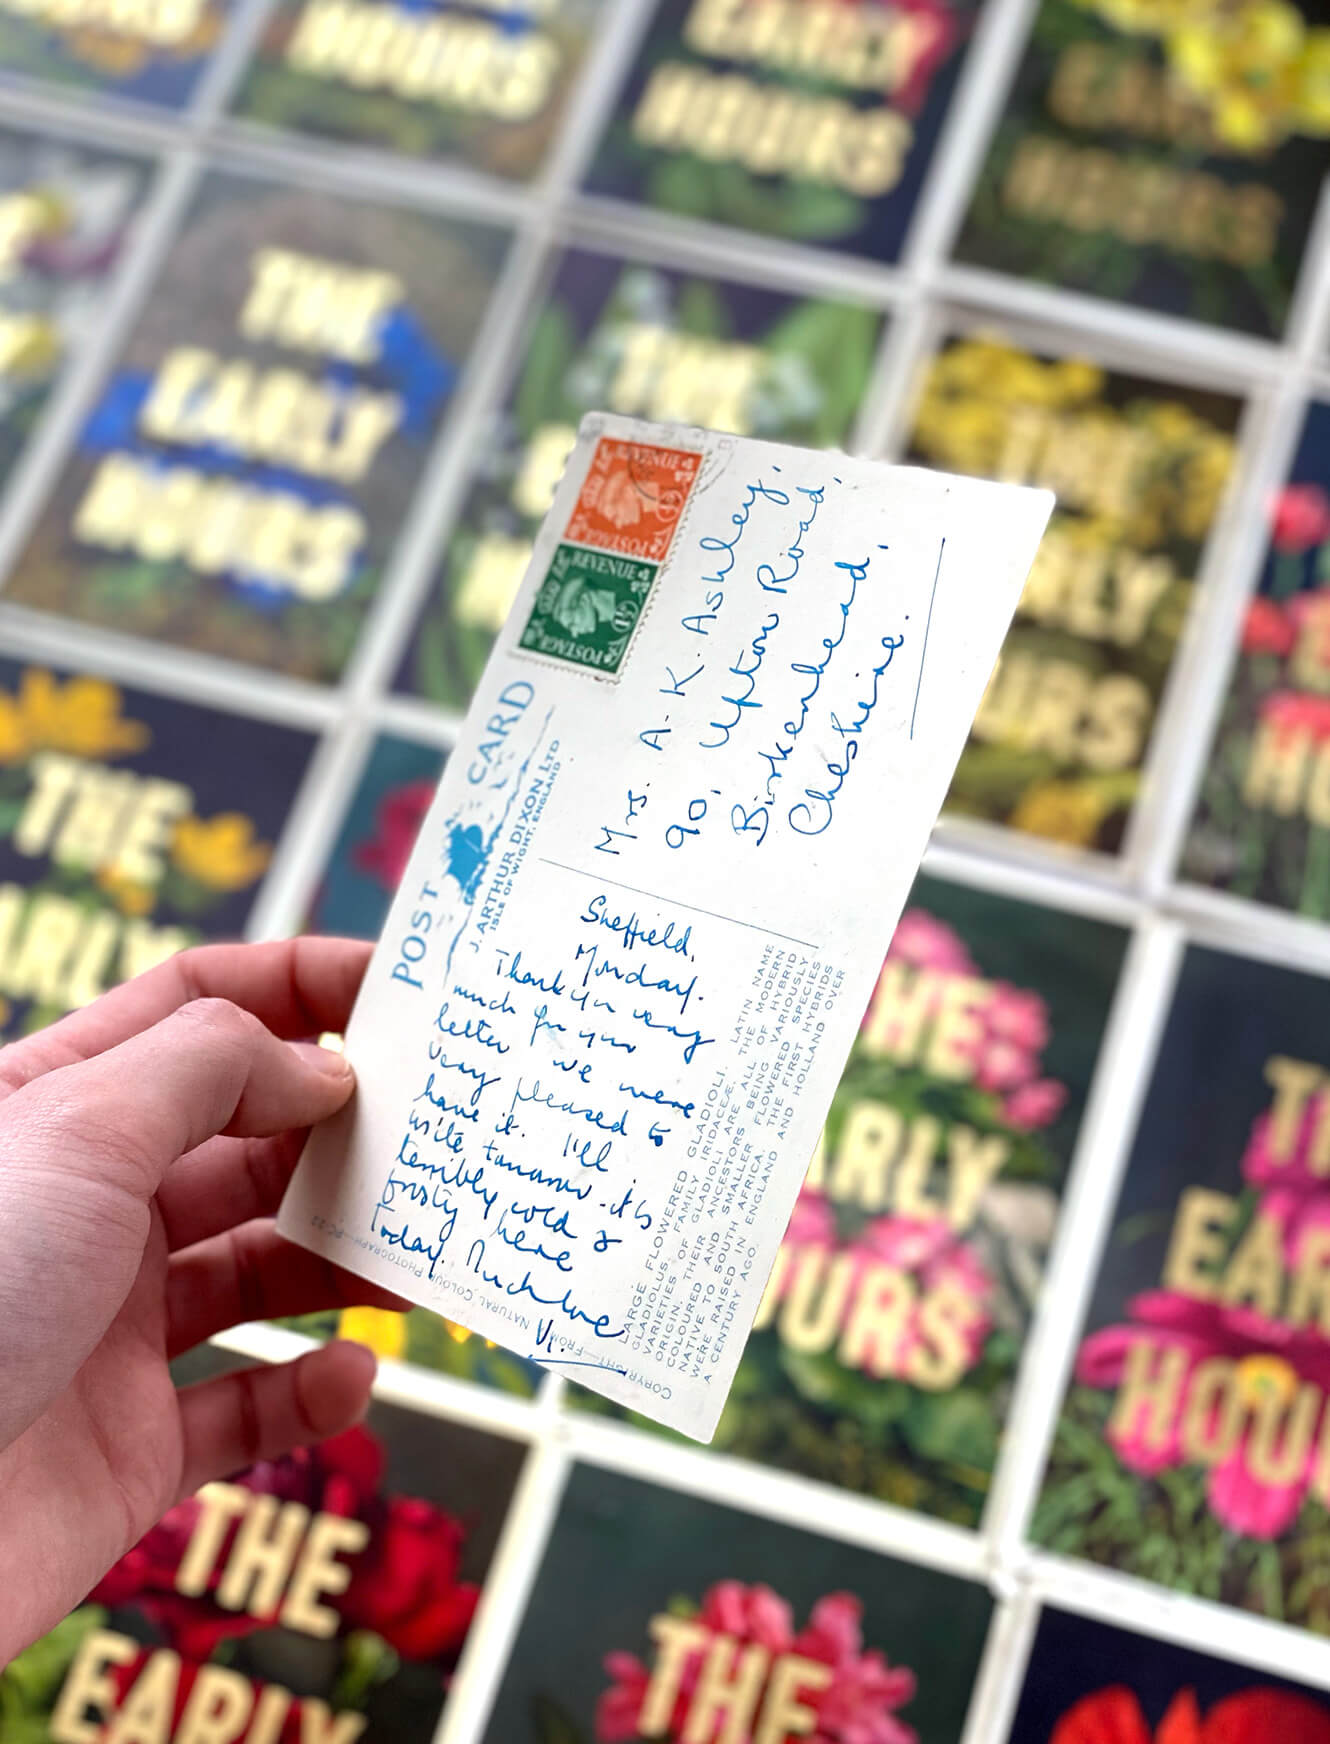 THE
EARLY
HOURS
THE
EARLY
HOURS
EARLY
HOURS
EARLY
HOURS
THE
EARLY
HOURS
THE
THE
EARLY
HOURS
THE
EARLY
THE
EARLY
HOURS
THE
EARLY
HOURS
THE
EARLY
THE
POST CARD
J. ARTHUR DIXON LTD
ISLE OF WIGHT, ENGLAND
REVENUE
POSTAGE
REVENUE
POSTAGE
Mrs. A. K. Ashley,
90, Upton Road,
Birkenhead,
Cheshire.
Sheffield,
Monday.
Thank you very
much for your
letter we were
very pleased to
have it. I'll
write tomorrow. it is
terribly cold &
frosty here
today. Much love
Vi.
LARGE FLOWERED GLADIOLI. LATIN NAME
GLADIOLUS, FAMILY IRIDACEÆ. ALL THE MODERN
VARIETIES OF GLADIOLI ARE BEING OF HYBRID
ORIGIN, THEIR ANCESTORS ALL FLOWERED VARIOUSLY
COLOURED AND SMALLER. THE FIRST SPECIES
NATIVE TO SOUTH AFRICA. AND HOLLAND HYBRIDS
WERE RAISED IN ENGLAND OVER
A CENTURY AGO.
COPYRIGHT—FROM NATURAL COLOUR PHOTOGRAPH—